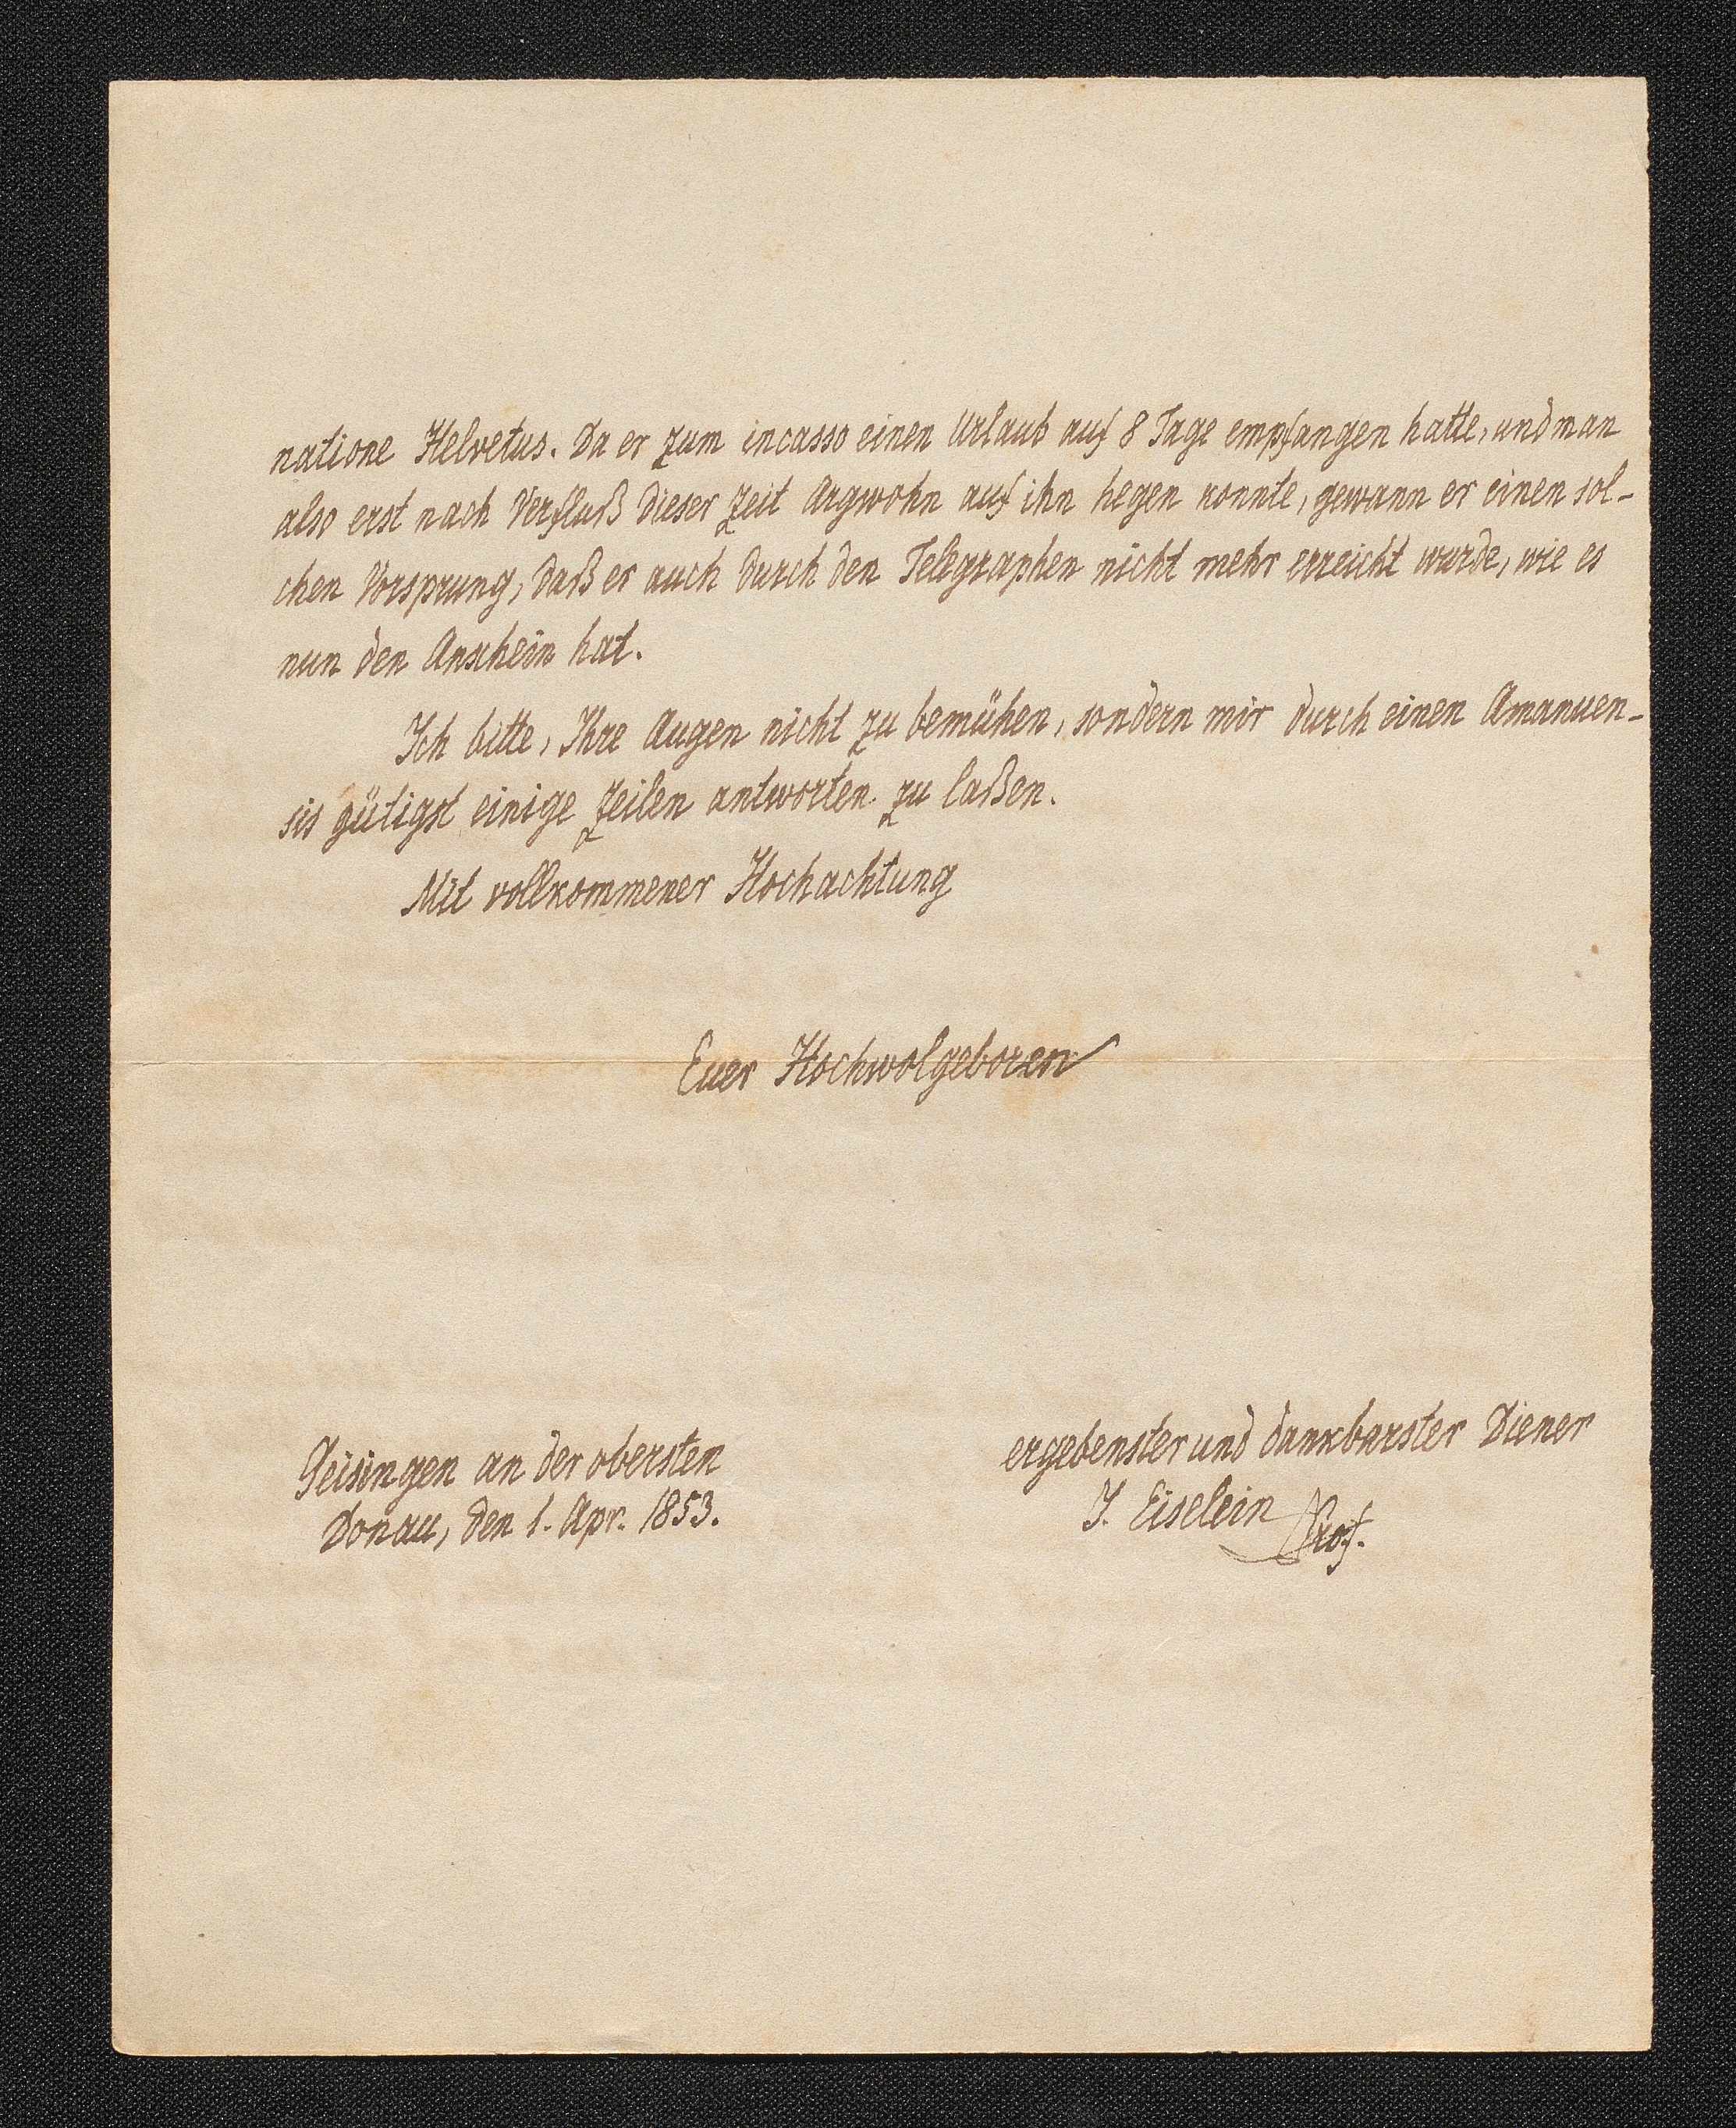 natione Helvetus. Da er zum incasso einen Urlaub auf 8 Tage empfangen hatte, und man
also erst nach Verfluß dieser Zeit Argwohn auf ihn hegen konnte, gewann er einen sol-
chen Vorsprung, daß er auch durch den Telegraphen nicht mehr erreicht wurde, wie es
nun den Anschein hat.
Ich bitte, Ihre Augen nicht zu bemühen, sondern mir durch einen Amanuen-
sis gütigst einige Zeilen antworten zu laßen.
Mit vollkommener Hochachtung
Euer Hochwolgeboren
ergebenster und dankbarster Diener
J. Eiselein Prof.
Geisingen an der obersten
Donau, den 1. Apr. 1853.